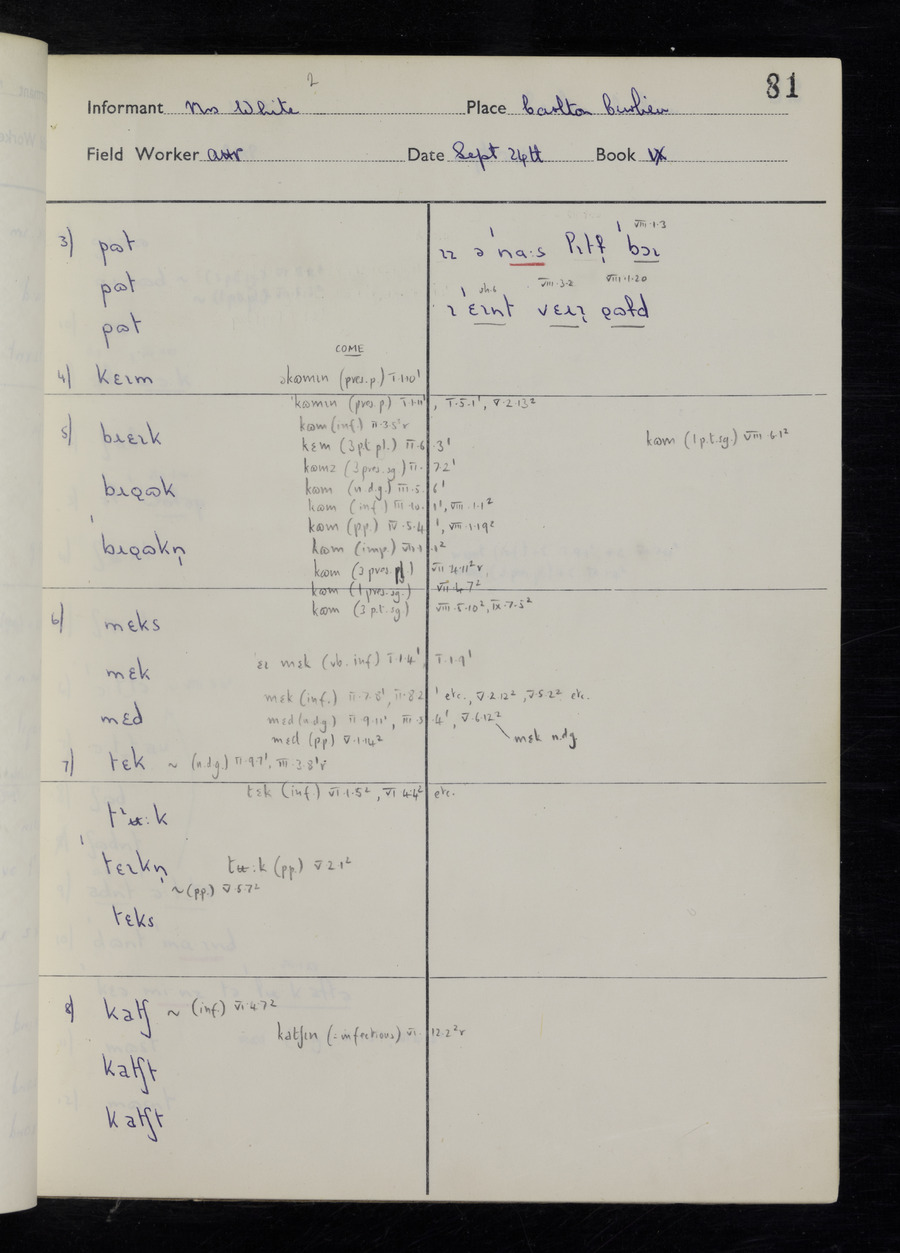 81
2
Informant Mrs White Place Carlton Curlieu
Field Worker Date Sept 24th Book IX
3) pɷt
ɪz ə ˈna:s lɪtɫ ˈbɔɪ VIII.1.3
pɷt
ɪ ˈɛɪnt vɛɪɹɪ ɡɷɫd VIII.3.2 VIII.1.20
pɷt
COME
4) kɛɪm əkɷmɪn (pres.p.) I.1.10¹
ˈkɷmɪn (pres.p.) I.1.11¹, I.5.1¹, V.2.13²
kɷm (inf.) II.3.5²r
5) bɹɛɪk kɛm (3 p.t. pl.) II.6.3¹ kɷm (1 p.t. sg.) VIII.6.1²
kɷmz (3 pres. sg.) II.7.2¹
bɹɷk kɷm (n.d.g.) III.5.6¹
kɷm (inf.) III.10.1¹, VIII.1.1²
kɷm (pp.) IV.5.4¹, VIII.1.19²
ˈbɹɷkn̩ kɷm (imp.) VII.1.1²
kɷm (3 pres. pl.) VII.4.11²r
kɷm (1 pres. sg.) VII.4.7²
kɷm (3 p.t. sg.) VIII.5.10², IX.7.5²
6) mɛks
mɛk mɛk (vb. inf.) I.1.4¹, I.1.9¹
mɛk (inf.) II.7.8¹, II.8.2¹ etc., V.2.12², V.5.2² etc.
mɛd mɛd (n.d.g.) II.9.11¹, III.3.4¹, V.6.12²
mɛd (pp) V.1.14² mɛk n.d.g.
7) tɛk ~ (n.d.g.) II.9.7¹, III.3.8¹r
tɛk (inf.) VI.1.5², VI.4.4² etc.
tᶻʉ:k
ˈtɛɪkn̩ tʉ:k (pp.) V.2.1²
~ (pp.) V.5.7²
tɛks
8) katʃ ~ (inf.) VI.4.7²
katʃɪn (= infectious) VI.12.2²r
katʃt
katʃt